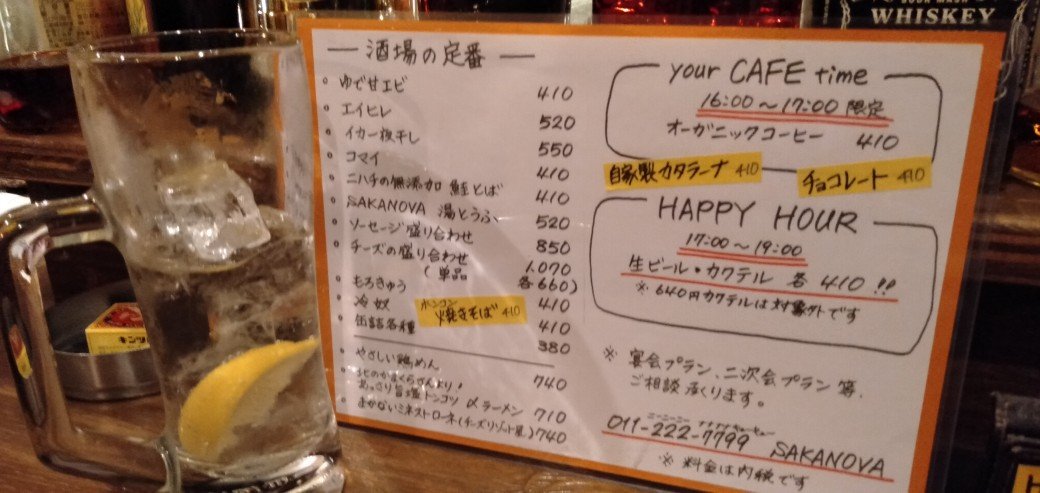 WHISKEY
酒場の定番
ゆで甘エビ 410
エイヒレ 520
イカ一夜干し 550
コマイ 410
ニハチの無添加 鮭とば 410
SAKANOVA 湯とうふ 520
ソーセージ盛り合わせ 850
チーズの盛り合わせ 1.070
(単品 各660)
もろきゅう 410
冷奴 410
缶詰各種 380
ホンコン
焼きそば 410
やさしい鶏めん 740
あっさり旨塩トンコツ 〆ラーメン 710
まかないミネストローネ(チーズリゾット風) 740
your CAFE time
16:00〜17:00 限定
オーガニックコーヒー 410
自家製カタラーナ 410
チョコレート 410
HAPPY HOUR
17:00〜19:00
生ビール・カクテル 各 410!!
※640円カクテルは対象外です
※ 宴会プラン、二次会プラン 等、
ご相談承ります。
011-222-7799 SAKANOVA
※ 料金は内税です